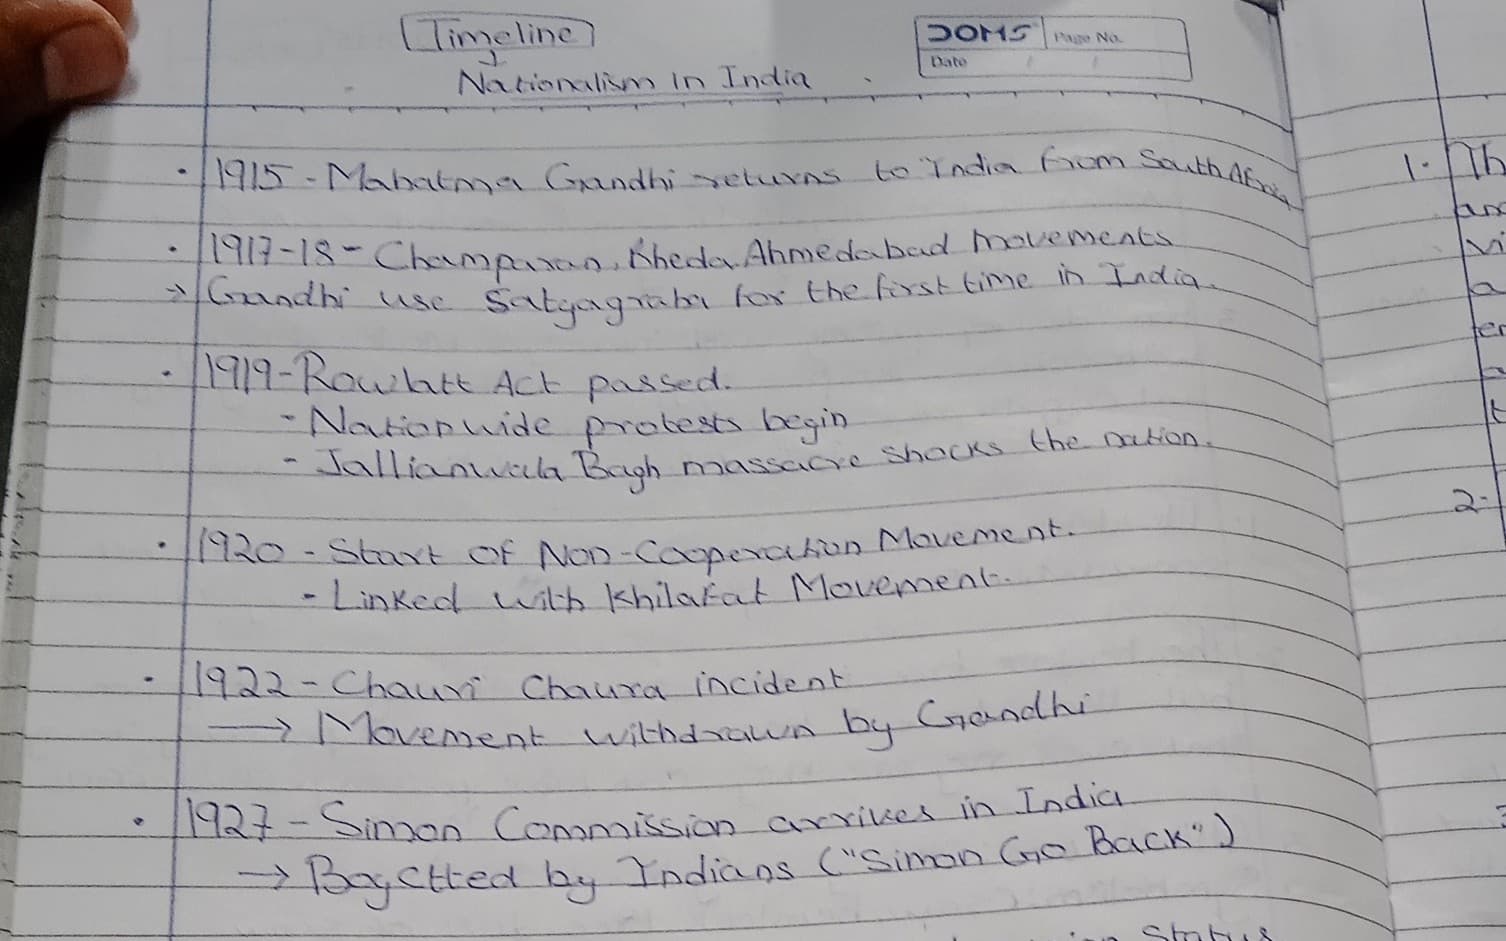 Timeline
DOMS Page No.
Date
Nationalism in India
• 1915 - Mahatma Gandhi returns to India from South Africa
• 1917-18 - Champaran, Kheda Ahmedabad movements
→ Gandhi use Satyagraha for the first time in India.
• 1919 - Rowlatt Act passed.
- Nationwide protests begin
- Jallianwala Bagh massacre shocks the nation.
• 1920 - Start of Non-Cooperation Movement.
- Linked with Khilafat Movement.
• 1922 - Chauri Chaura incident
→ Movement withdrawn by Gandhi
• 1927 - Simon Commission arrives in India
→ Boyctted by Indians ("Simon Go Back")
Status
1.
2.